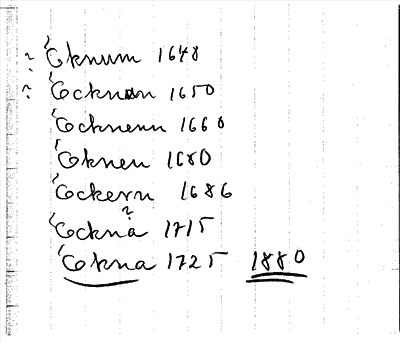 ? Eknum 1648
? Ecknun 1650
Ecknenn 1660
Eknen 1680
Eckern 1686
Ecknä 1715
Eckna 1725 1880